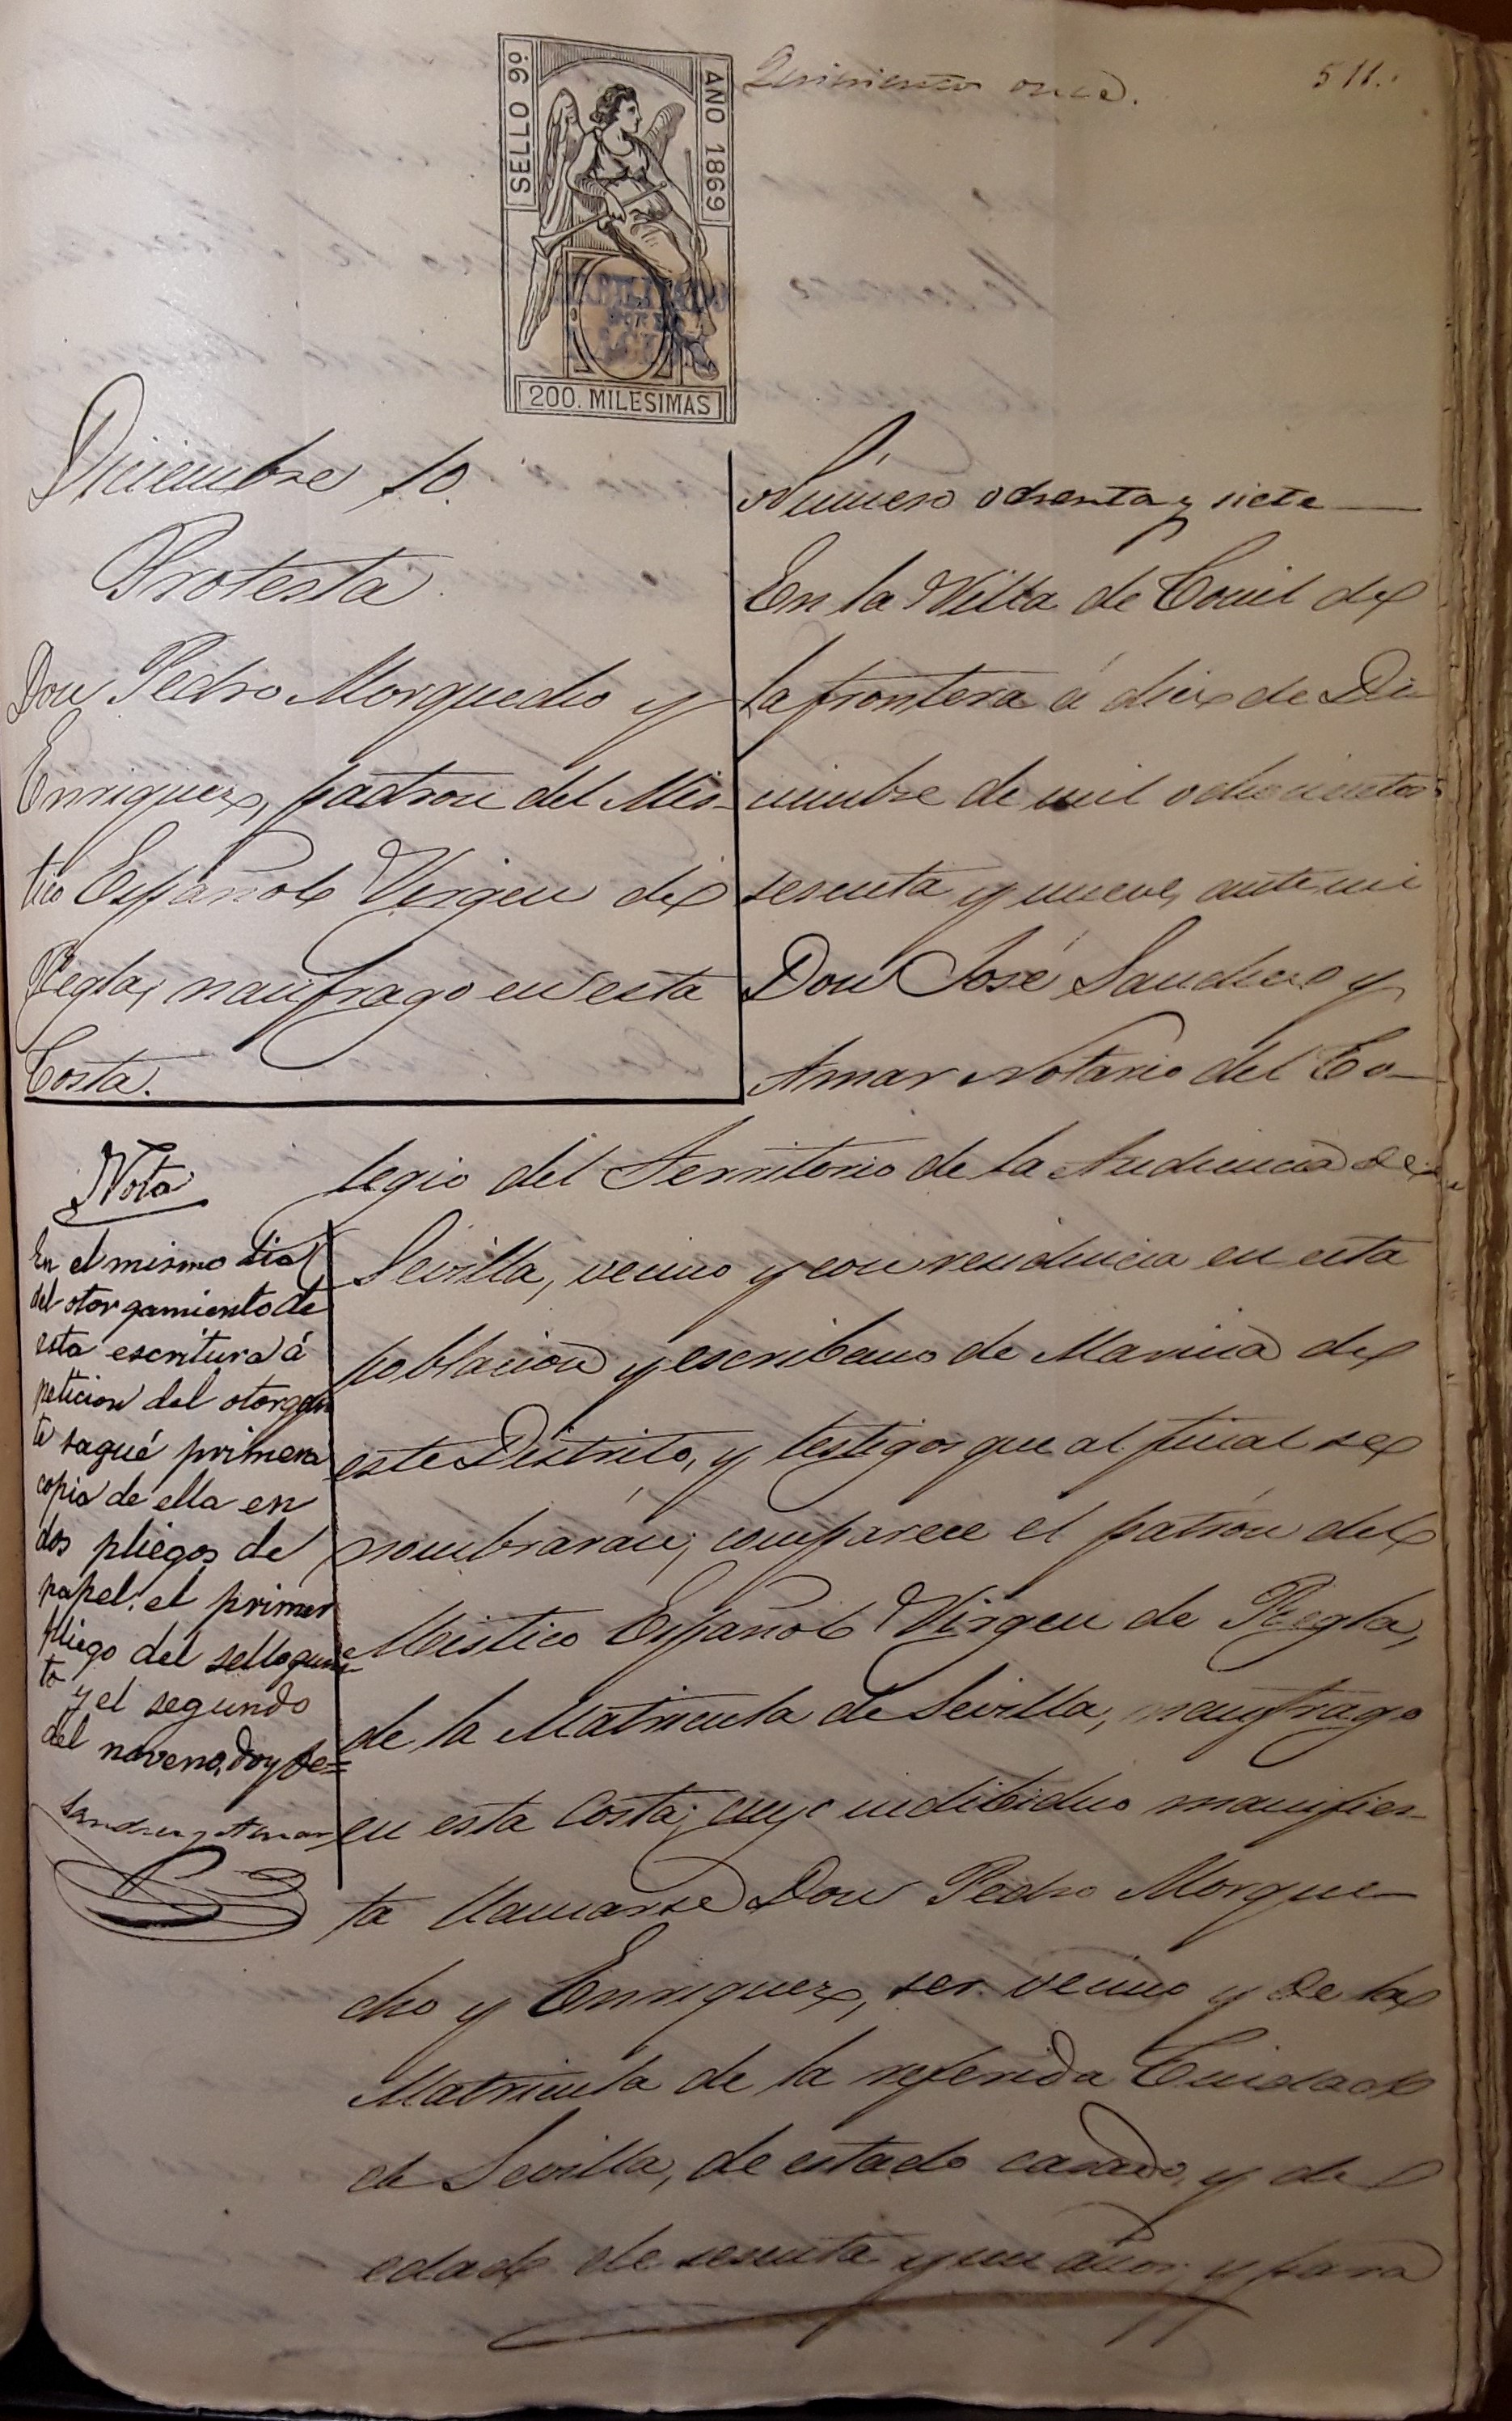 SELLO 9º
AÑO 1869
200. MILESIMAS
HABILITADO
POR LA
NACION
Quinientos once.
511.
Diciembre 10.
Protesta.
Don Pedro Morquecho y
Enriquez, patron del Mis-
tico Español Virgen de
Regla, naufrago en esta
Costa.
Número ochenta y siete
En la Villa de Conil de
la frontera á diez de Di
ciembre de mil ochocientos
sesenta y nueve, ante mi
Don José Sanchez y
Amar Notario del Co-
legio del Territorio de la Audiencia de
Sevilla, vecino y con residencia en esta
poblacion y escribano de Marina de
este Distrito, y testigos que al final se
nombrarán, comparece el patrón del
Mistico Español Virgen de Regla,
de la Matricula de Sevilla, naufrago
en esta Costa; cuyo indibiduo manifies-
ta llamarse Don Pedro Morque-
cho y Enriquez, ser vecino y de la
Matricula de la referida Ciudad
de Sevilla, de estado casado, y de
edad de sesenta y un años; y para
Nota
En el mismo dia
del otorgamiento de
esta escritura á
peticion del otorgan
te saqué primera
copia de ella en
dos pliegos de
papel: el primer
pliego del sello quin
to y el segundo
del noveno, doy fe=
Sanchez y Amar